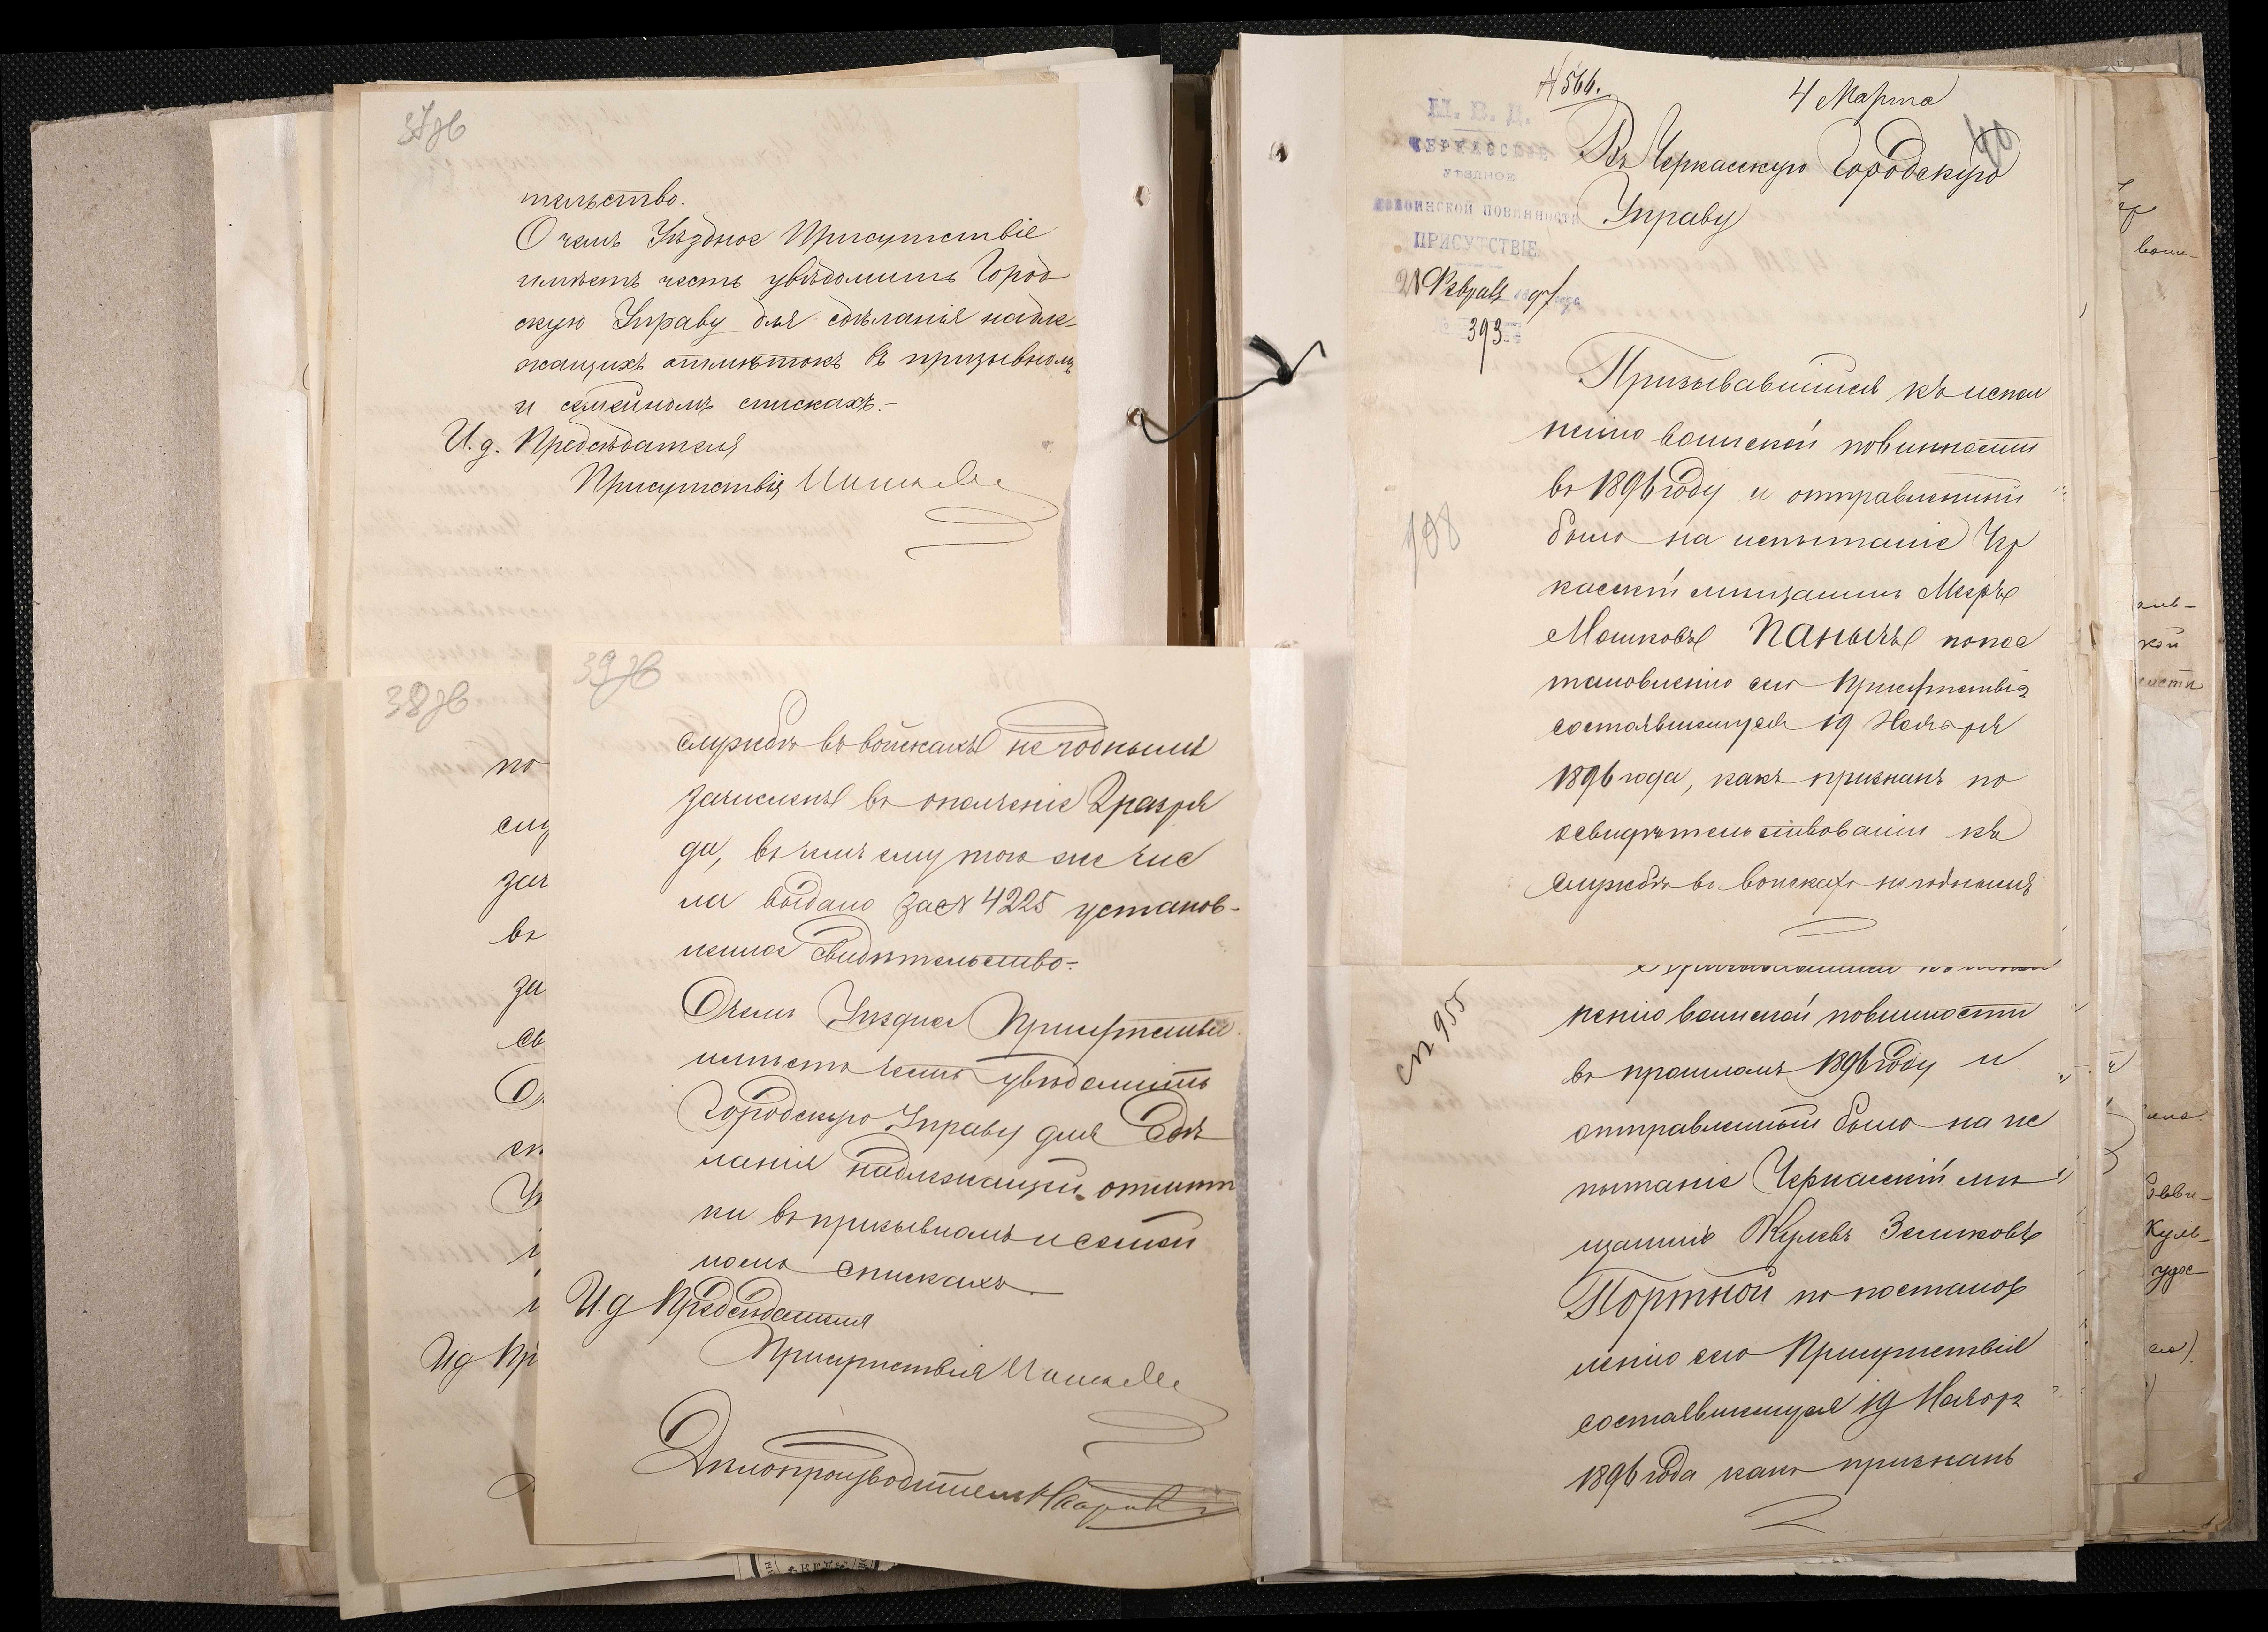 37об
тельство.
О чемъ Уѣздное Присутствіе
имѣетъ честь увѣдомить Город
скую Управу для сдѣланія надле-
жащихъ отмѣтокъ въ призывномъ
и семейномъ спискахъ.-
И.д. Предсѣдателя
Присутствія
38об
по
слу
зач
въ
за
св
О
ск
Ид Пр
39об
службѣ въ войскахъ негоднымъ
зачисленъ въ ополченіе 2 разря
да, въ чемъ ему того же чис
ла выдано за № 4225 установ-
ленное свидѣтельство.-
О чемъ Уѣздное Присутствіе
имѣетъ честь увѣдомить
Городскую Управу для сдѣ
ланія надлежащей отмѣт
ки въ призывномъ и семей
номъ спискахъ.
И.д Предсѣдателя
Присутствія
Дѣлопроизводитель
№ 566.
4 Марта
40
М. В. Д.
ЧЕРКАССКОЕ
УѢЗДНОЕ
ПО ВОИНСКОЙ ПОВИННОСТИ
ПРИСУТСТВІЕ
Февраля 1897 года
№ 393
Въ Черкасскую Городскую
Управу
Призывавшійся къ испол
ненію воинской повинности
въ 1896 году и отправленный
было на испытаніе Чер
касскій мѣщанинъ
Мошковъ Паничъ по пос
тановленію сего Присутствія
состоявшемуся 19 Ноября
1896 года, какъ признанъ по
освидѣтельствованіи къ
службѣ въ войскахъ негоднымъ
198
сп 955
ненію воинской повинности
въ прошломъ 1896 году и
отправленный было на ис
пытаніе Черкасскій мѣ
щанинъ Зельковъ
Портной по постанов
ленію сего Присутствія
состоявшемуся 19 Ноября
1896 года какъ признанъ
воин-
кой
Куль-